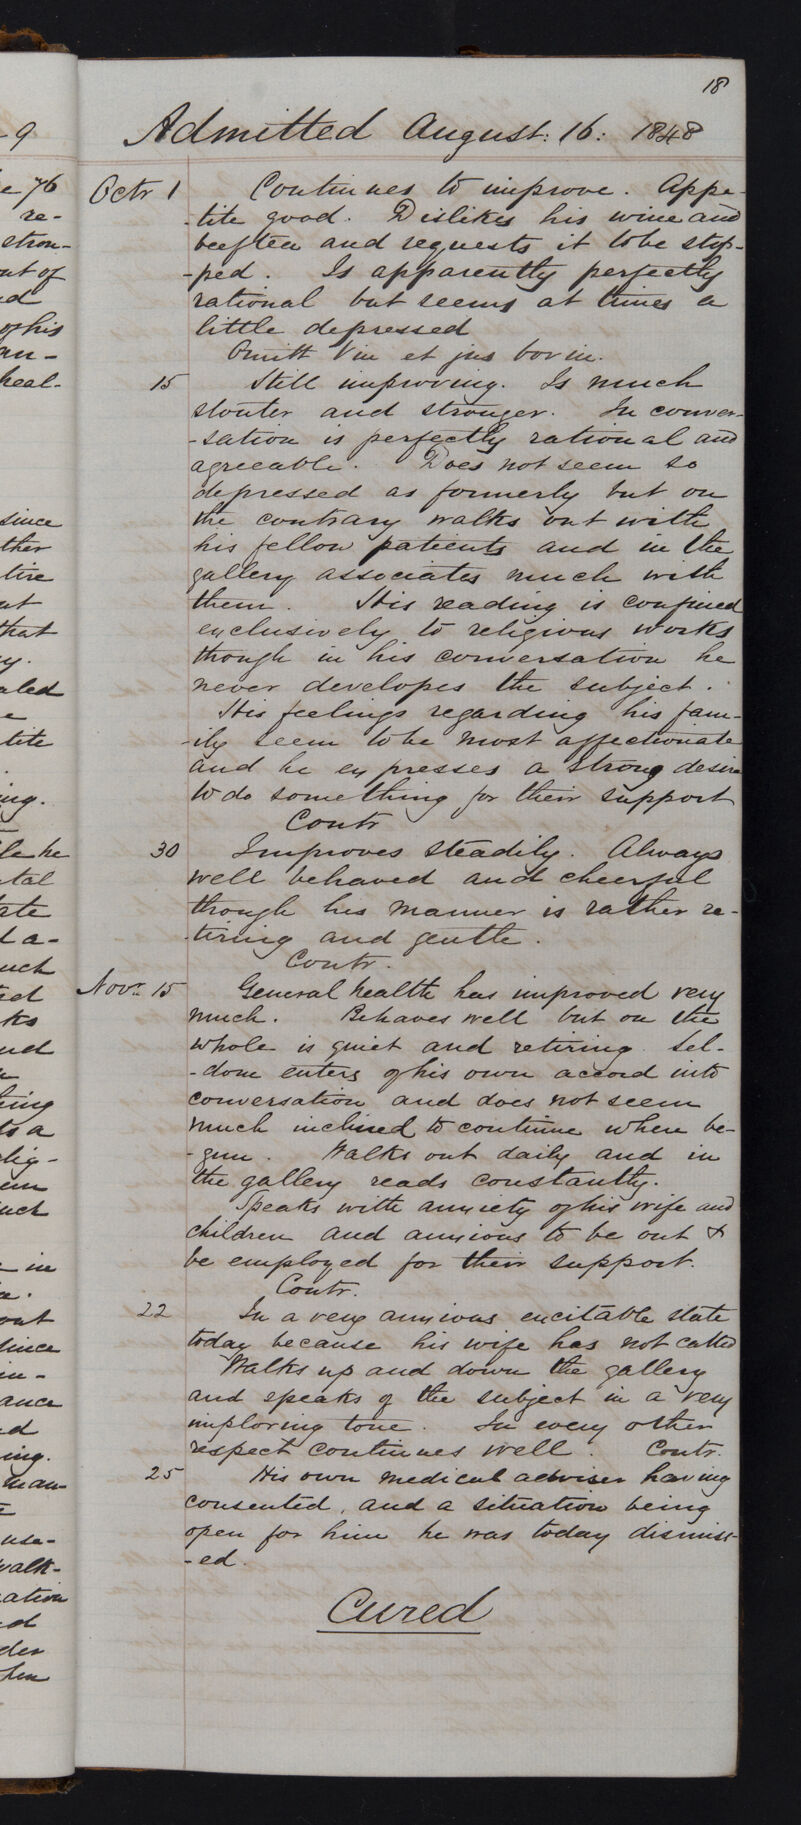 18
Admitted August: 16: 1848
Octr 1 Continues to improve. Appe-
-tite good. Dislikes his wine and
beeftea and requests it to be stop-
-ped. Is apparently perfectly
rational but seems at times a
little depressed
Omitt Vin et jus bovin.
15 Still improving. Is much
stouter and stronger. In conver-
-sation is perfectly rational and
agreeable. Does not seem so
depressed as formerly but on
the contrary walks out with
his fellow patients and in the
gallery associates much with
them. His reading is confined
exclusively to religious works
though in his conversation he
never developes the subject.
His feelings regarding his fam-
-ily seem to be most affectionate
and he expresses a strong desire
to do something for their support
Contr
30 Improves steadily. Always
well behaved and cheerful
though his manner is rather re-
-tiring and gentle.
Contr.
Novr 15 General health has improved very
much. Behaves well but on the
whole is quiet and retiring. Sel-
-dom enters of his own accord into
conversation and does not seem
much inclined to continue when be-
-gun. Walks out daily and in
the gallery reads constantly.
Speaks with anxiety of his wife and
children and anxious to be out &
be employed for their support.
Contr.
22 In a very anxious excitable state
today because his wife has not called
Walks up and down the gallery
and speaks of the subject in a very
imploring tone. In every other
respect continues well. Contr.
25 His own medical adviser having
consented, and a situation being
open for him he was today dismiss-
-ed.
Cured